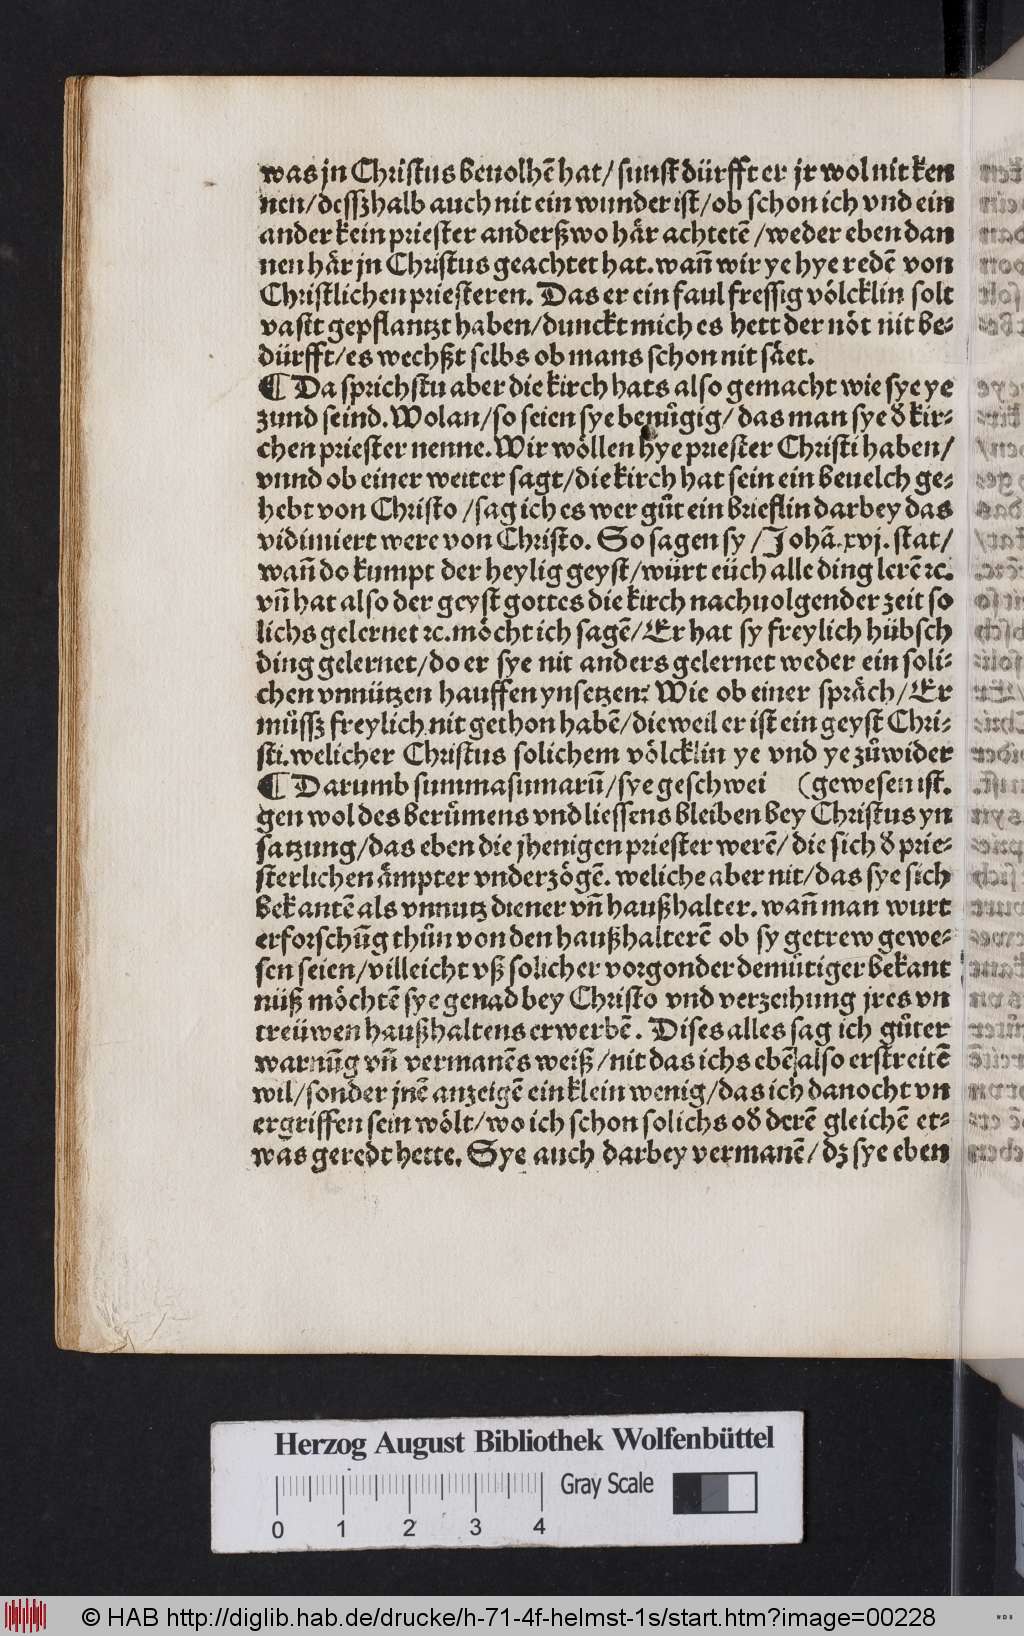 was jn Christus beuolhē hat / sunst dürfft er jr wol nit ken
nen / desszhalb auch nit ein wunder ist / ob schon ich vnd ein
ander kein priester anderßwo här achtetē / weder eben dan
nen här jn Christus geachtet hat. wañ wir ye hye redē von
Christlichen priesteren. Das er ein faul fressig völcklin solt
vast gepflantzt haben / dunckt mich es hett der nöt nit be⸗
dürfft / es wechßt selbs ob mans schon nit säet.
¶ Da sprichstu aber die kirch hats also gemacht wie sye ye
zund seind. Wolan / so seien sye benuͦgig / das man sye ð kir⸗
chen priester nenne. Wir wöllen hye priester Christi haben /
vnnd ob einer weiter sagt / die kirch hat sein ein beuelch ge⸗
hebt von Christo / sag ich es wer guͦt ein brieflin darbey das
vidimiert were von Christo. So sagen sy / Johā. xvj. stat /
wañ do kumpt der heylig geyst / würt eüch alle ding lerē ꝛc.
vñ hat also der geyst gottes die kirch nachuolgender zeit so
lichs gelernet ꝛc. möcht ich sagē / Er hat sy freylich hübsch
ding gelernet / do er sye nit anders gelernet weder ein soli⸗
chen vnnützen hauffen ynsetzen: Wie ob einer spräch / Er
muͦssz freylich nit gethon habē / dieweil er ist ein geyst Chri⸗
sti. welicher Christus solichem völcklin ye vnd ye zuͦwider
¶ Darumb summasumarū / sye geschwei (gewesen ist.
gen wol des beruͦmens vnd liessens bleiben bey Christus yn
satzung / das eben die jhenigen priester werē / die sich ð prie⸗
sterlichen ämpter vnderzögē. weliche aber nit / das sye sich
bekantē als vnnutz diener vñ haußhalter. wañ man wurt
erforschūg thuͦn von den haußhalterē ob sy getrew gewe⸗
sen seien / villeicht vß solicher vorgonder demuͤtiger bekant
nüß möchtē sye genad bey Christo vnd verzeihung jres vn
treüwen haußhaltens erwerbē. Dises alles sag ich guͦter
warnūg vñ vermanēs weiß / nit das ichs ebē also erstreitē
wil / sonder jnē anzeigē ein klein wenig / das ich danocht vn
ergriffen sein wölt / wo ich schon solichs oð derē gleichē et⸗
was geredt hette. Sye auch darbey vermanē / dz sye eben
Herzog August Bibliothek Wolfenbüttel
Gray Scale
0 1 2 3 4
© HAB http://diglib.hab.de/drucke/h-71-4f-helmst-1s/start.htm?image=00228